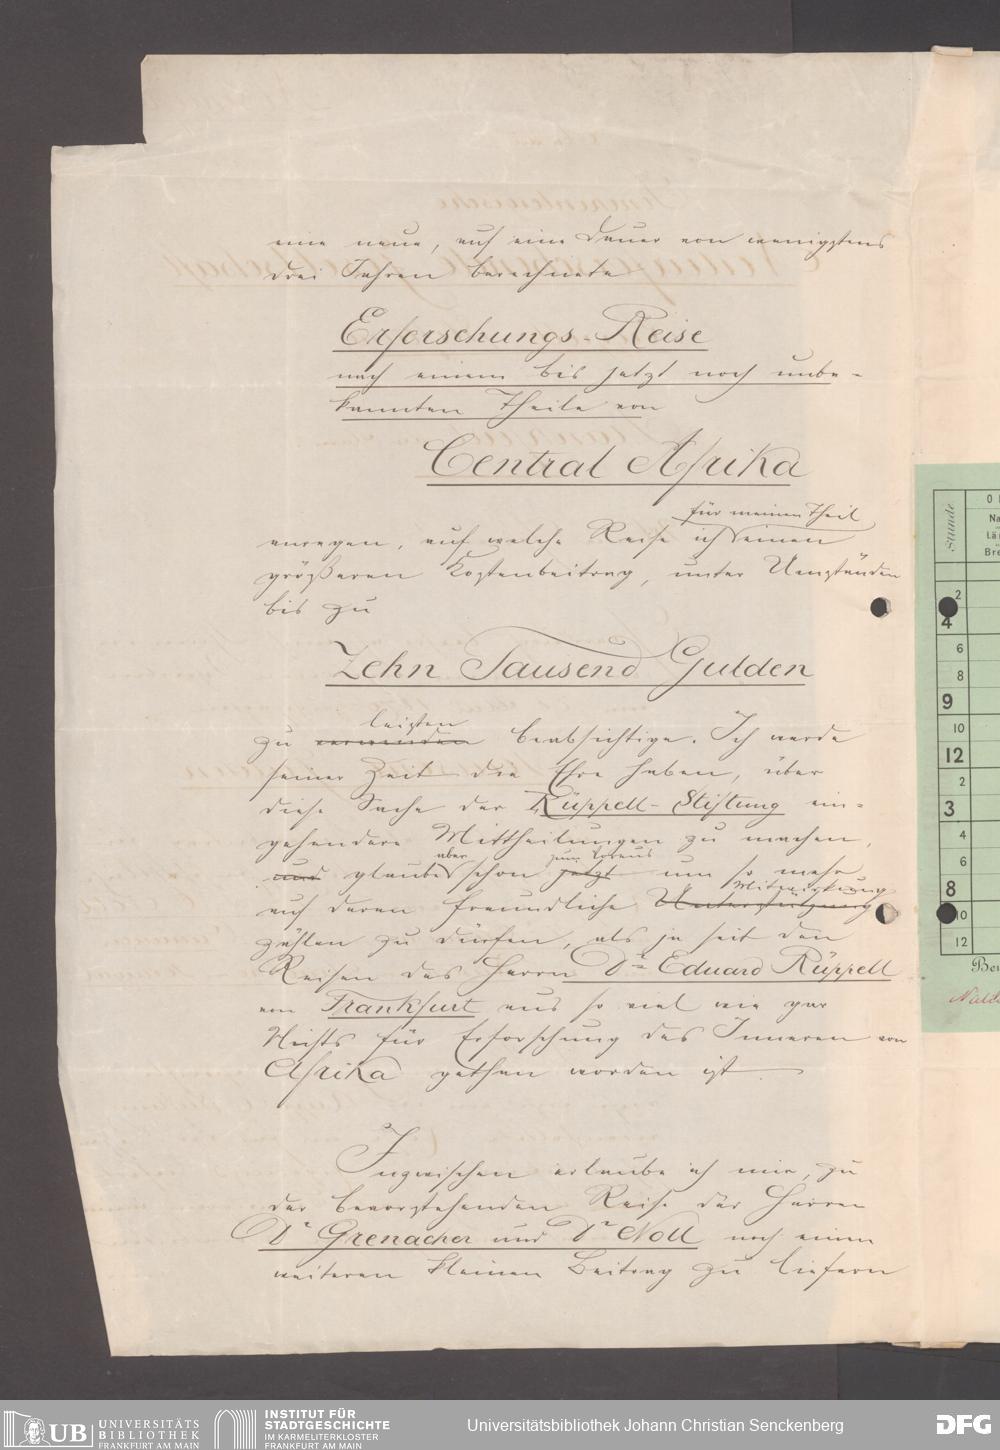 eine neue, auf eine Dauer von wenigstens
drei Jahren berechnete
Erforschungs-Reise
nach einem bis jetzt noch unbe-
kannten Theile von
Central Afrika
für meinen Theil
anregen, auf welche Reise ich einen
größeren Kostenbeitrag, unter Umständen
bis zu
Zehn Tausend Gulden
leisten
zu verwenden beabsichtige. Ich werde
seiner Zeit die Ehre haben, über
diese Sache der Rüppell-Stiftung ein-
gehendere Mittheilungen zu machen,
aber zum Voraus
und glaube schon jetzt um so mehr
Mitwirkung
auf deren freundliche Unterstützung
zählen zu dürfen, als ja seit den
Reisen des Herrn Dr Eduard Rüppell
von Frankfurt aus so viel wie gar
Nichts für Erforschung des Inneren von
Afrika gethan worden ist.
Inzwischen erlaube ich mir, zu
der bevorstehenden Reise der Herren
Dr Grenacher und Dr Noll noch einen
weiteren kleinen Beitrag zu liefern
Stunde
2
4
6
8
9
10
12
2
3
4
6
8
10
12
UB
UNIVERSITÄTS
BIBLIOTHEK
FRANKFURT AM MAIN
INSTITUT FÜR
STADTGESCHICHTE
IM KARMELITERKLOSTER
FRANKFURT AM MAIN
Universitätsbibliothek Johann Christian Senckenberg
DFG